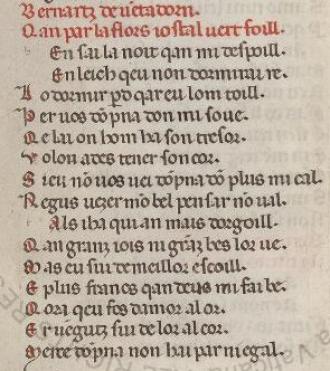 Bernartz de uentadorn.
Qan par la flors iostal uert foill.
En sai la noit qan mi despoill.
En leich qeu non dormirai re.
Lo dormir p̄d qar eu lom toill.
Per uos dōpna don mi soue.
Qe lai on hom ha son tresor.
Uol on ades tener son cor.
S ieu nō uos uei dōpna dō plus mi cal.
Negus uezer mō bel pensar nō ual.
Als iba qui an mais dorgoill.
Qan granz iois ni grāz bes lor ue.
Mas eu sui de meillor escoill.
E plus francs qan deus mi fai be.
Qora qeu fos damor al or.
Er uengutz sui de lor al cor.
Merce dōpna non hai par ni egal.